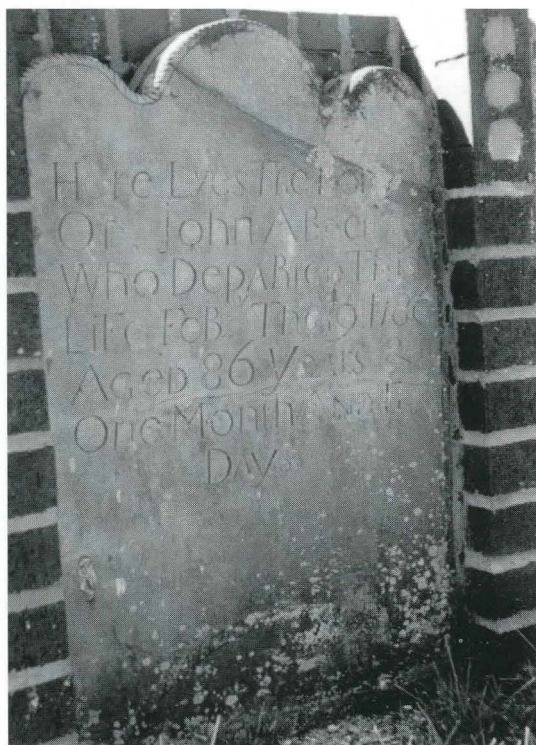 Here Lyes The
Of John
Who Departed This
Life Feb The 9
Aged 86 Years &
One Month And
Days